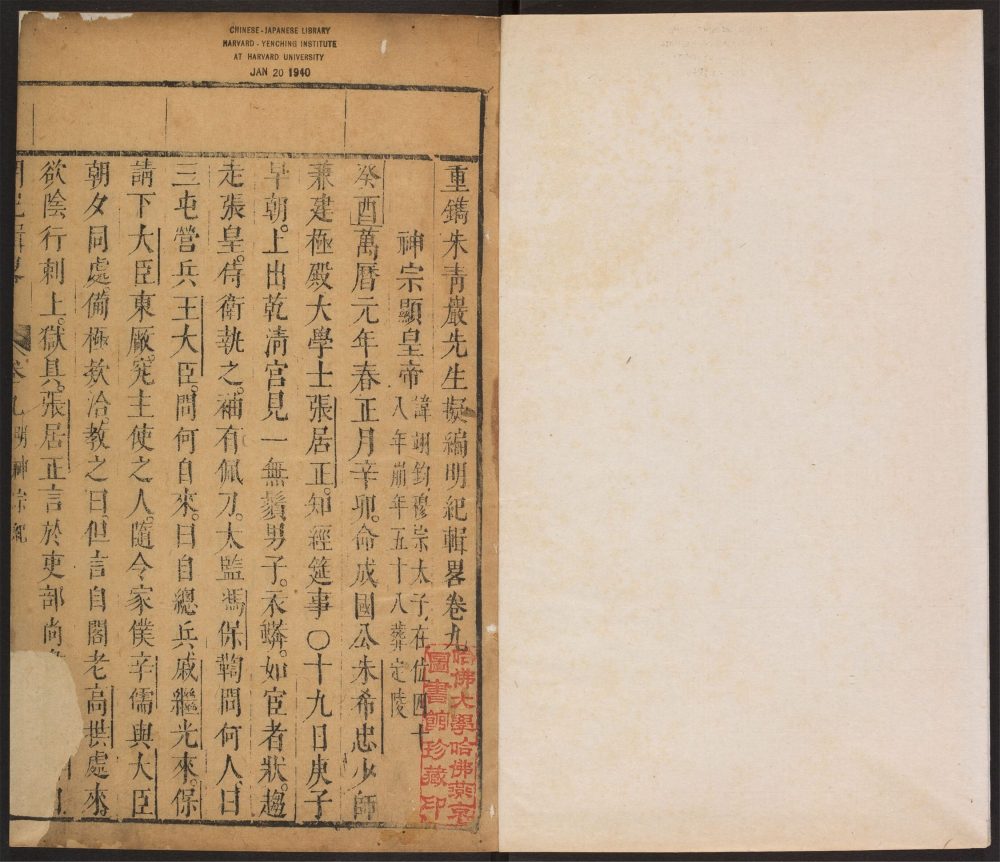 CHINESE-JAPANESE LIBRARY
HARVARD-YENCHING INSTITUTE
AT HARVARD UNIVERSITY
JAN 20 1940
重鐫朱青巖先生擬編明紀輯畧卷九
神宗顯皇帝 諱翊鈞穆宗太子在位四十
八年崩年五十八葬定陵
癸酉萬曆元年春正月辛卯。命成國公朱希忠少師
兼建極殿大學士張居正。知經筵事〇十九日庚子
早朝。上出乾淸宮見一無鬚男子。衣蟒。如宦者狀。趨
走張皇。侍衛執之。袖有佩刀。太監馮保鞫問何人、曰
三屯營兵王大臣。問何自來。曰自總兵戚繼光來。保
請下大臣東厰。究主使之人。隨令家僕辛儒與大臣
朝夕同處備極欵洽。教之曰。但言自閣老高拱處來。
欲陰行刺上。獄具。張居正言於吏部尚
明紀輯畧 卷九 明神宗紀
哈佛大學哈佛燕京
圖書館珍藏印